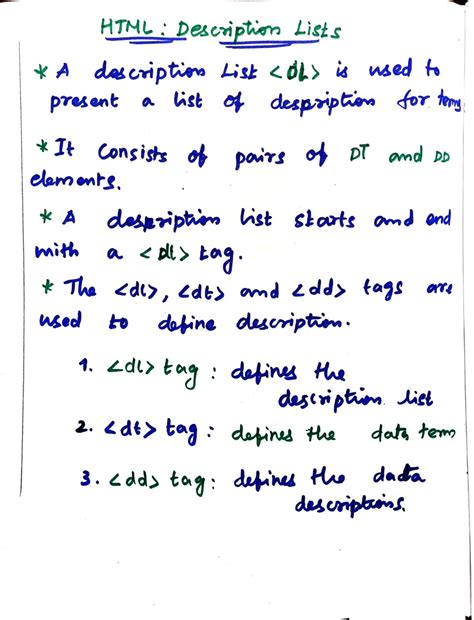 HTML : Description Lists
* A description List <DL> is used to
present a list of despription for terms
* It Consists of pairs of DT and DD
elements.
* A despription list starts and end
with a <dl> tag.
* The <dl>, <dt> and <dd> tags are
used to define description.
1. <dl> tag : defines the
description list
2. <dt> tag : defines the data term
3. <dd> tag : defines the dadta
descriptions.